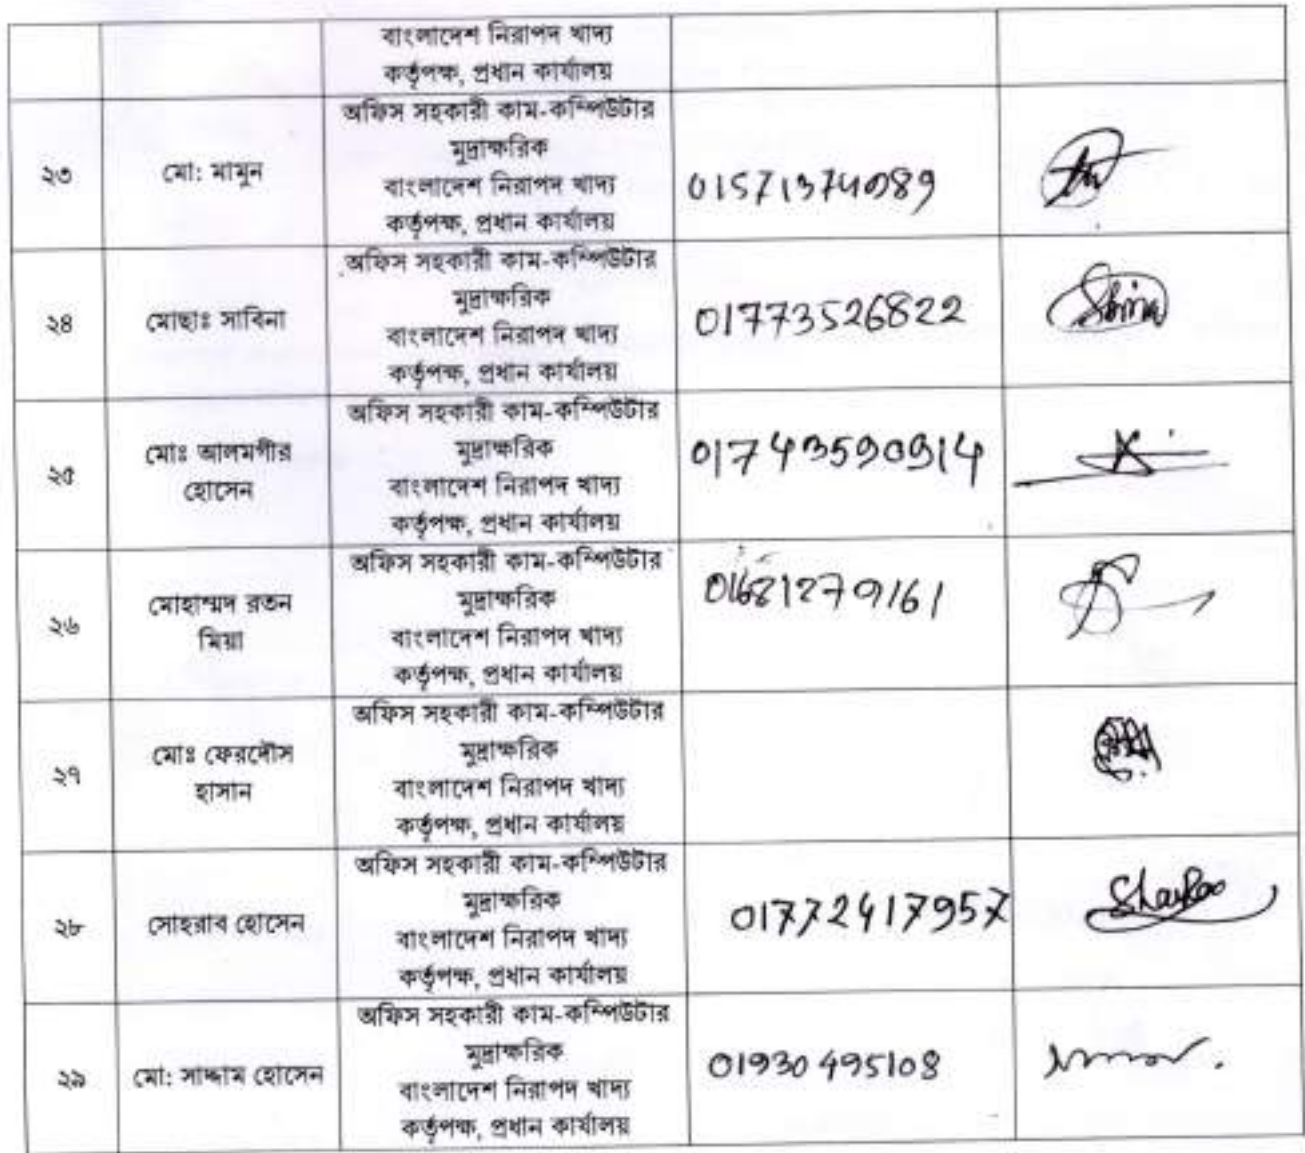 বাংলাদেশ নিরাপদ খাদ্য
কর্তৃপক্ষ, প্রধান কার্যালয়
২৩
মো: মামুন
অফিস সহকারী কাম-কম্পিউটার
মুদ্রাক্ষরিক
বাংলাদেশ নিরাপদ খাদ্য
কর্তৃপক্ষ, প্রধান কার্যালয়
01571374089
২৪
মোছাঃ সাবিনা
অফিস সহকারী কাম-কম্পিউটার
মুদ্রাক্ষরিক
বাংলাদেশ নিরাপদ খাদ্য
কর্তৃপক্ষ, প্রধান কার্যালয়
01773526822
২৫
মোঃ আলমগীর
হোসেন
অফিস সহকারী কাম-কম্পিউটার
মুদ্রাক্ষরিক
বাংলাদেশ নিরাপদ খাদ্য
কর্তৃপক্ষ, প্রধান কার্যালয়
২৬
মোহাম্মদ রতন
মিয়া
অফিস সহকারী কাম-কম্পিউটার
মুদ্রাক্ষরিক
বাংলাদেশ নিরাপদ খাদ্য
কর্তৃপক্ষ, প্রধান কার্যালয়
01681279161
২৭
মোঃ ফেরদৌস
হাসান
অফিস সহকারী কাম-কম্পিউটার
মুদ্রাক্ষরিক
বাংলাদেশ নিরাপদ খাদ্য
কর্তৃপক্ষ, প্রধান কার্যালয়
২৮
সোহরাব হোসেন
অফিস সহকারী কাম-কম্পিউটার
মুদ্রাক্ষরিক
বাংলাদেশ নিরাপদ খাদ্য
কর্তৃপক্ষ, প্রধান কার্যালয়
01772417957
২৯
মো: সাদ্দাম হোসেন
অফিস সহকারী কাম-কম্পিউটার
মুদ্রাক্ষরিক
বাংলাদেশ নিরাপদ খাদ্য
কর্তৃপক্ষ, প্রধান কার্যালয়
01930495108